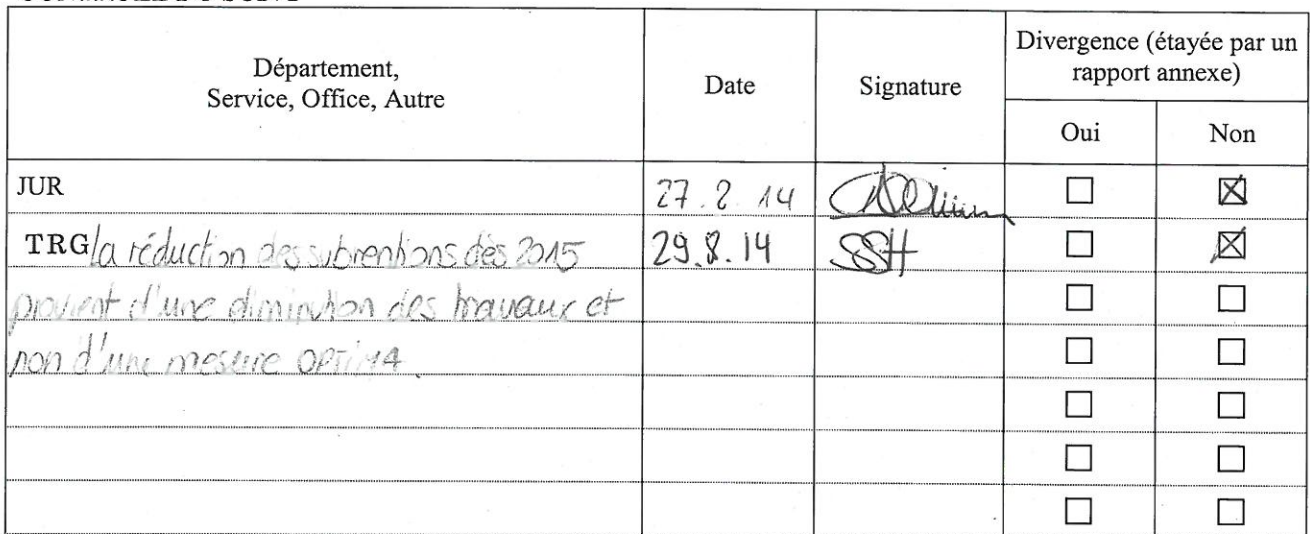 Département,
Service, Office, Autre
Date
Signature
Divergence (étayée par un
rapport annexe)
Oui
Non
JUR
27.2.14
TRG la réduction des subventions dès 2015
29.8.14
SSH
provient d'une diminution des travaux et
non d'une mesure